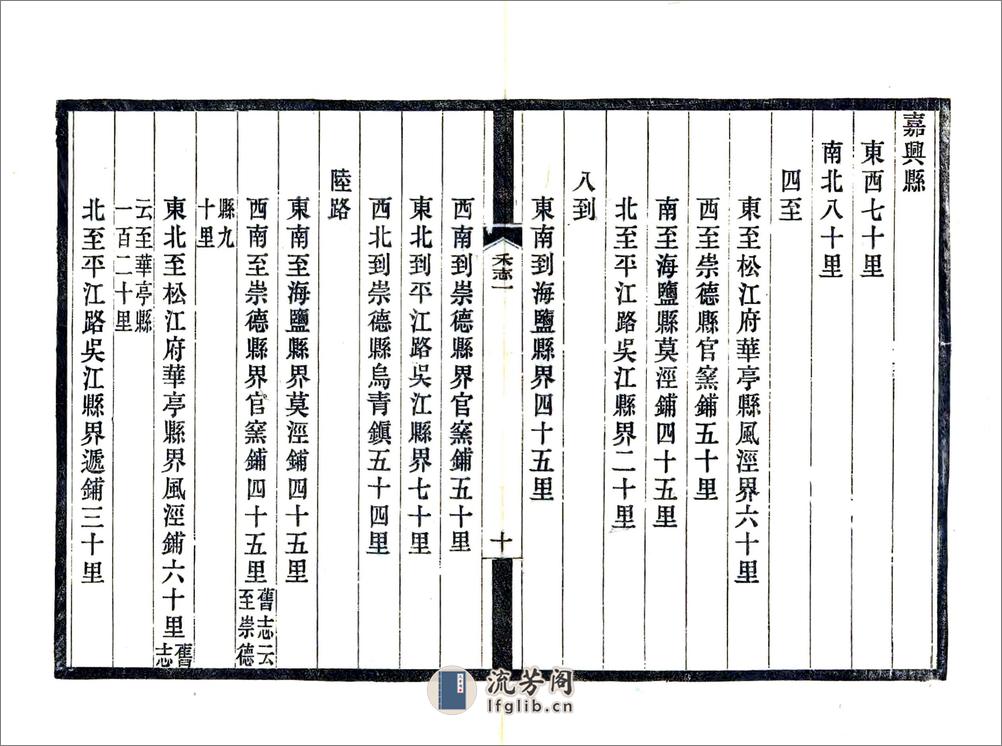 嘉興縣
東西七十里
南北八十里
四至
東至松江府華亭縣風涇界六十里
西至崇德縣官窯鋪五十里
南至海鹽縣莫涇鋪四十五里
北至平江路吳江縣界二十里
八到
東南到海鹽縣界四十五里
禾志一
十
西南到崇德縣界官窯鋪五十里
東北到平江路吳江縣界七十里
西北到崇德縣烏青鎮五十四里
陸路
東南至海鹽縣界莫涇鋪四十五里
西南至崇德縣界官窯鋪四十五里舊志云至崇德
縣九十里
東北至松江府華亭縣界風涇鋪六十里舊志
云至華亭縣一百二十里
北至平江路吳江縣界遞鋪三十里
流芳阁
lfglib.cn